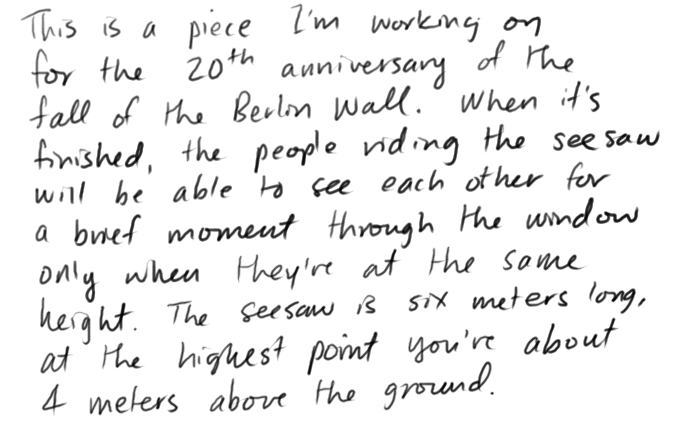 This is a piece I'm working on
for the 20th anniversary of the
fall of the Berlin Wall. When it's
finished, the people riding the seesaw
will be able to see each other for
a brief moment through the window
only when they're at the same
height. The seesaw is six meters long,
at the highest point you're about
4 meters above the ground.